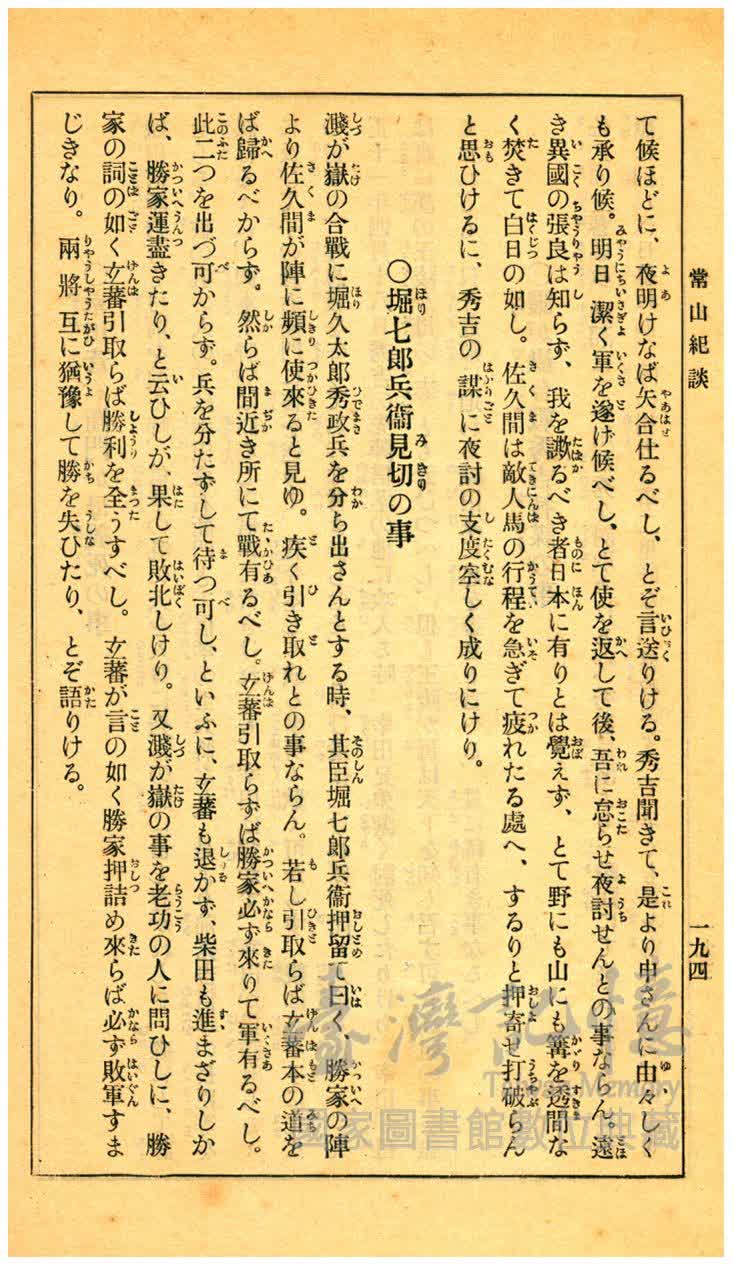 常山紀談
一九四
て候ほどに、夜明けなば矢合仕るべし、とぞ言送りける。秀吉聞きて、是より申さんに由々しく
も承り候。明日潔く軍を遂げ候べし、とて使を返して後、吾に怠らせ夜討せんとの事ならん。遠
き異國の張良は知らず、我を謀るべき者日本に有りとは覺えず、とて野にも山にも篝を透間な
く焚きて白日の如し。佐久間は敵人馬の行程を急ぎて疲れたる處へ、するりと押寄せ打破らん
と思ひけるに、秀吉の謀に夜討の支度空しく成りにけり。
〇堀七郎兵衞見切の事
濺が嶽の合戰に堀久太郎秀政兵を分ち出さんとする時、其臣堀七郎兵衞押留て曰く、勝家の陣
より佐久間が陣に頻に使來ると見ゆ。疾く引き取れとの事ならん。若し引取らば玄蕃本の道を
ば歸るべからず。然らば間近き所にて戰有るべし。玄蕃引取らずば勝家必ず來りて軍有るべし。
此二つを出づ可からず。兵を分たずして待つ可し、といふに、玄蕃も退かず、柴田も進まざりしか
ば、勝家運盡きたり、と云ひしが、果して敗北しけり。又濺が嶽の事を老功の人に問ひしに、勝
家の詞の如く玄蕃引取らば勝利を全うすべし。玄蕃が言の如く勝家押詰め來らば必ず敗軍すま
じきなり。兩將互に猶豫して勝を失ひたり、とぞ語りける。
臺灣記憶
Taiwan Memory
國家圖書館數位典藏